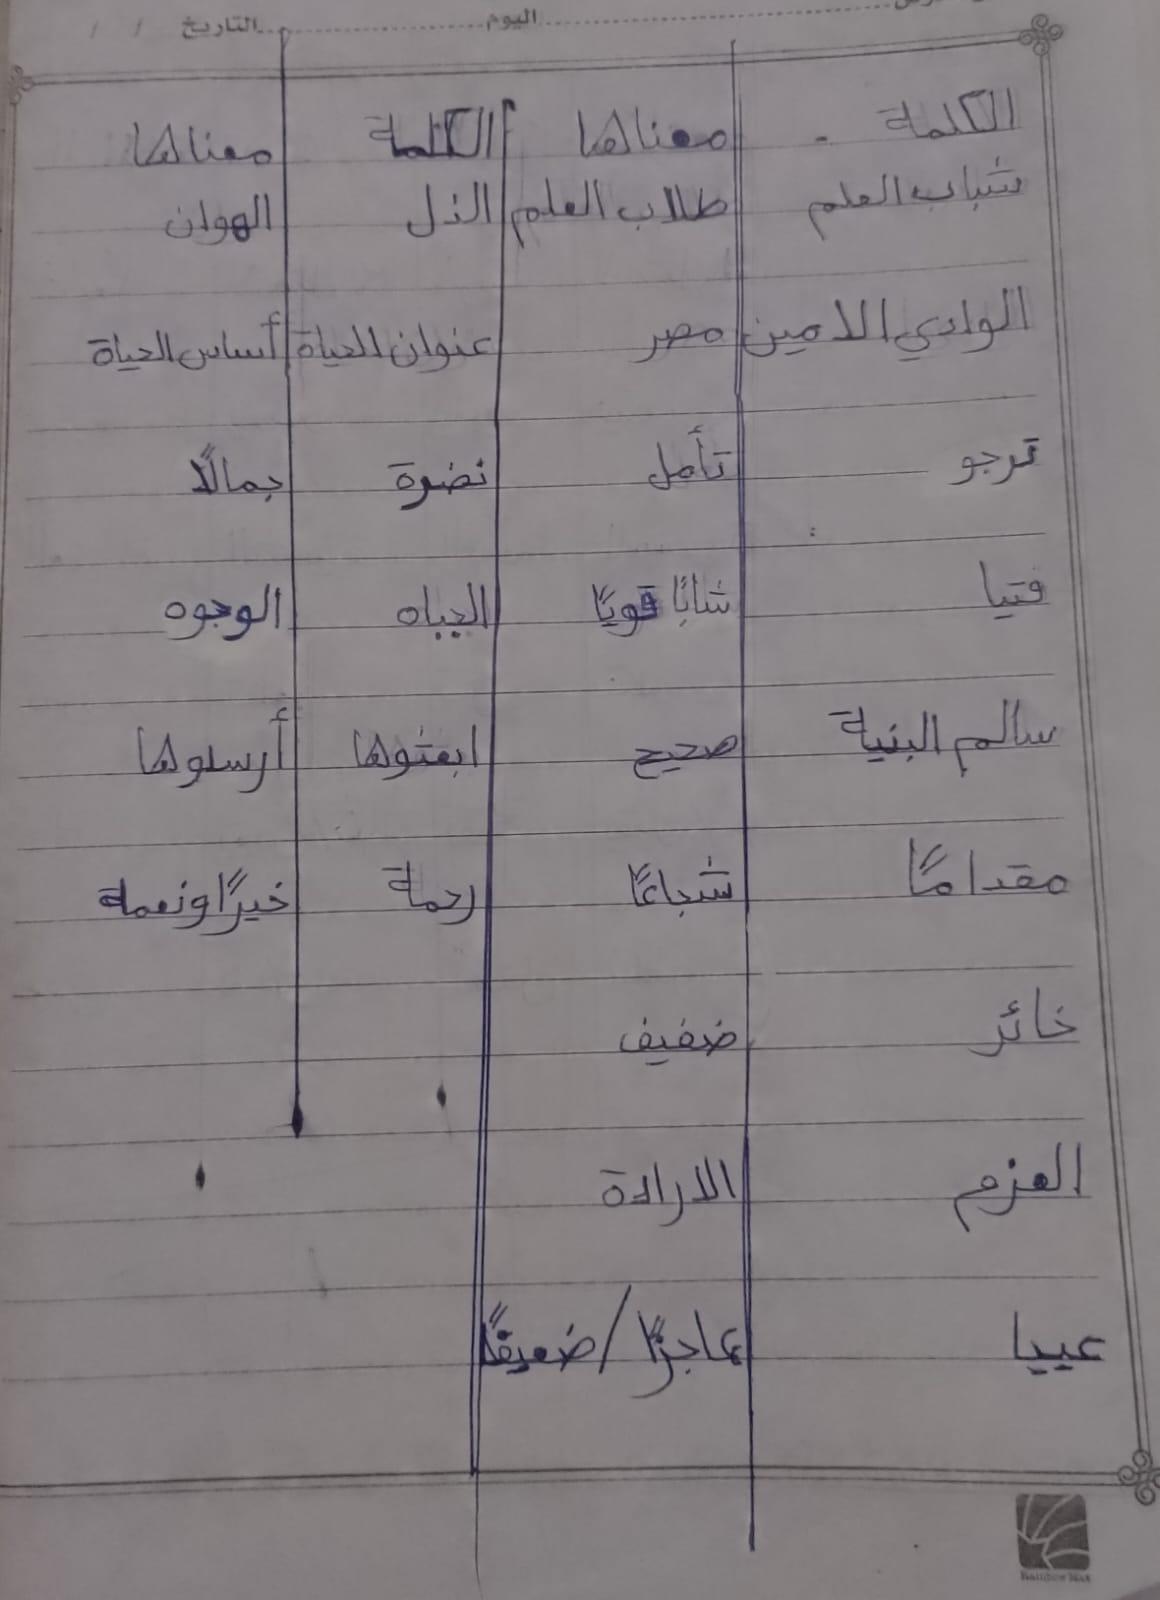 اليوم التاريخ / /
الكلمة - معناها الكلمة معناها
شباب العلم طلاب العلم الذل الهوان
الوادي الامين مصر عنوان الحياة أساس الحياة
ترجو تأمل نضرة جمالًا
فتيا شابًا قويًا الجباه الوجوه
سالم البنية صحيح ابعثوها أرسلوها
مقدامًا شجاعًا رحمة خيرًا ونعمة
خائر ضعيف
العزم الارادة
عييا عاجزًا / ضعيفًا
Rainbow Max